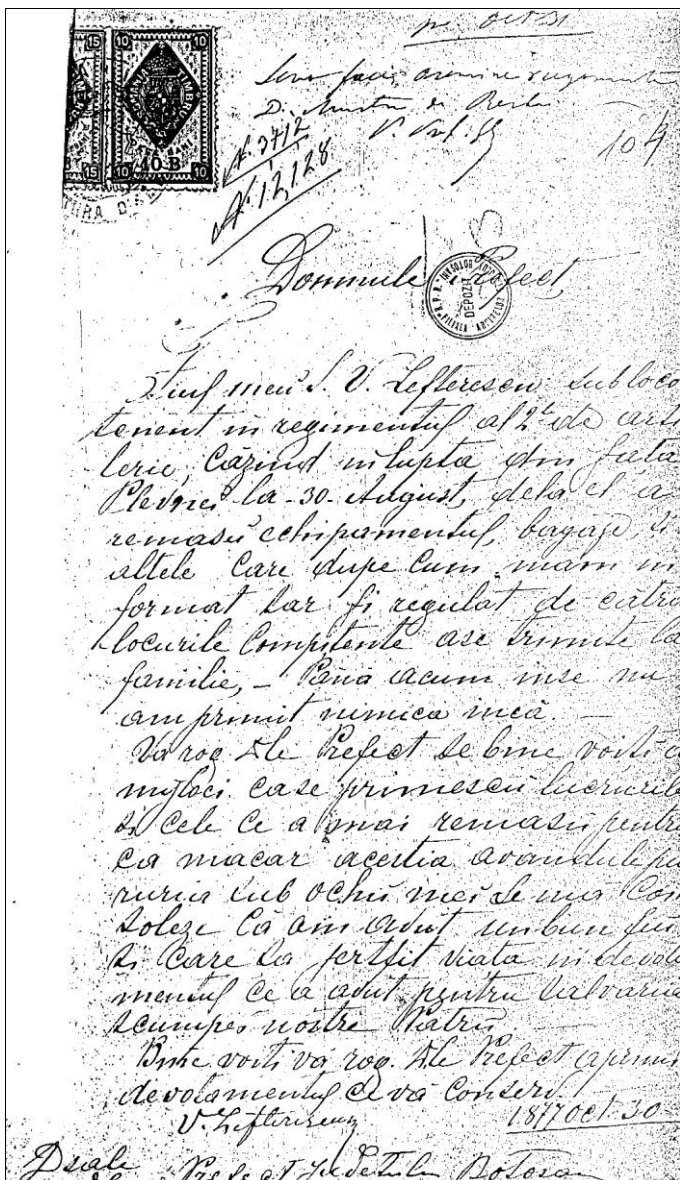 15
10
10
ROMANIA
TIMBRU
10 B
10
10
N. 3712
N. 12,128
D.
104
Domnule Prefect
DEPOZIT
Fiul meu S. V. Lefterescu subloco
tenent in regimentul al 2lea de arti
lerie, cazind in lupta din fata
Plevnei la 30 August, dela el a
remasu echipamentul, bagaje, si
altele care dupe cum mam in
format sar fi regulat de catra
locurile Competente ase trimite la
familie, - Pana acum inse nu
am primit nimica inca. -
Va rog Dle Prefect se bine voiti a
mijloci case primescu lucrurile
si cele ce a mai remasu pentru
ca macar acestia avandule pu
ruria sub ochii mei se ma con
soleze ca am avut un bun fiu
si care sa jertfit viata in devota
mentul ce a avut pentru salvarea
scumpei nostre Patrii
Bine voiti va rog Dle Prefect a primi
devotamentul ce va conserv.
V. Lefterescu
1877 Oct 30
Dsale
Prefect Judetului Botosan